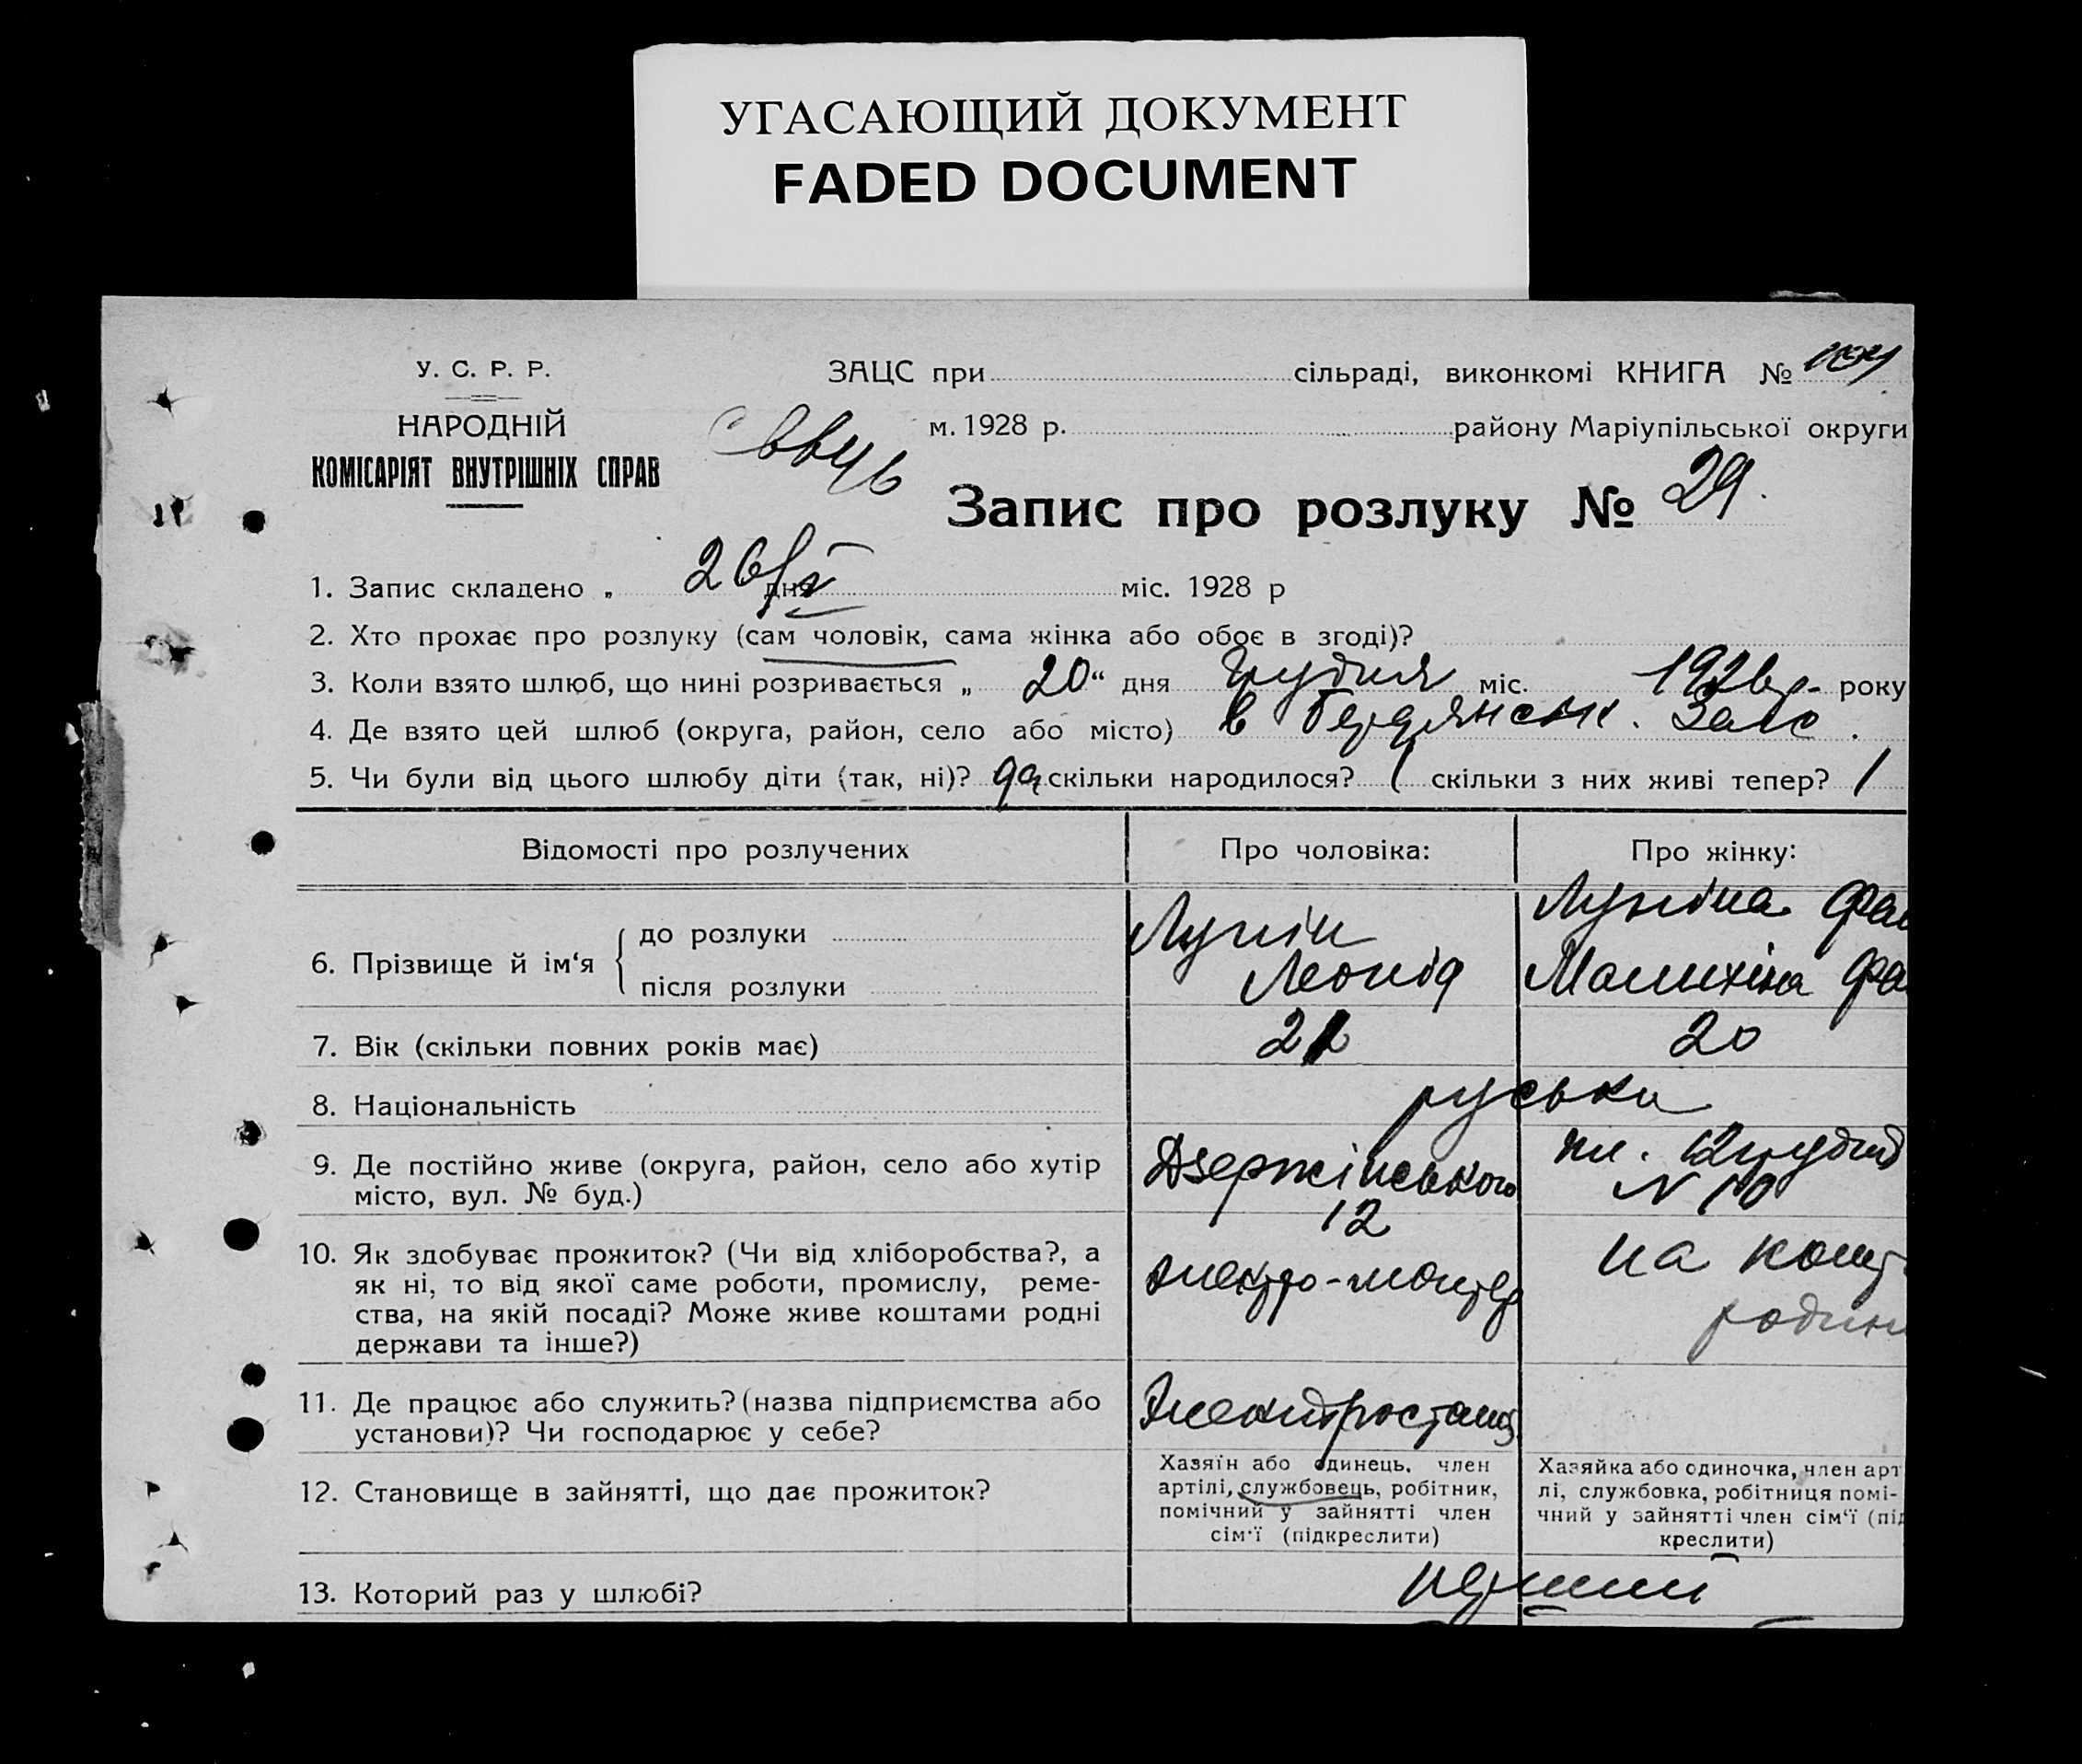 УГАСАЮЩИЙ ДОКУМЕНТ
FADED DOCUMENT
У. С. Р. Р.
НАРОДНІЙ
КОМІСАРІЯТ ВНУТРІШНІХ СПРАВ
ЗАЦС при сільраді, виконкомі КНИГА №
м. 1928 р. району Маріупільської округи
Запис про розлуку № 29.
1. Запис складено „ 26/V дня міс. 1928 р
2. Хто прохає про розлуку (сам чоловік, сама жінка або обоє в згоді)?
3. Коли взято шлюб, що нині розривається „ 20“ дня Грудня міс. 1926 р. року
4. Де взято цей шлюб (округа, район, село або місто) в Бердянськ. Загс.
5. Чи були від цього шлюбу діти (так, ні)? да скільки народилося? 1 скільки з них живі тепер? 1
Відомості про розлучених Про чоловіка: Про жінку:
6. Прізвище й ім‘я
до розлуки Лунін Луніна Фаї
після розлуки Леонід Малихіна Фа
7. Вік (скільки повних років має) 22 20
8. Національність руськи
9. Де постійно живе (округа, район, село або хутір
місто, вул. № буд.)
Дзержінського
12
пл. 12 грудня
N 10
10. Як здобуває прожиток? (Чи від хліборобства?, а
як ні, то від якої саме роботи, промислу, реме-
ства, на якій посаді? Може живе коштами родні
держави та інше?)
електро-монтер
на кошт
родин
11. Де працює або служить? (назва підприємства або
установи)? Чи господарює у себе?
Электростанц
12. Становище в зайнятті, що дає прожиток?
Хазяїн або одинець, член
артілі, службовець, робітник,
помічний у зайнятті член
сім‘ї (підкреслити)
Хазяйка або одиночка, член арт
лі, службовка, робітниця помі-
чний у зайнятті член сім‘ї (під
креслити)
13. Которий раз у шлюбі? перший